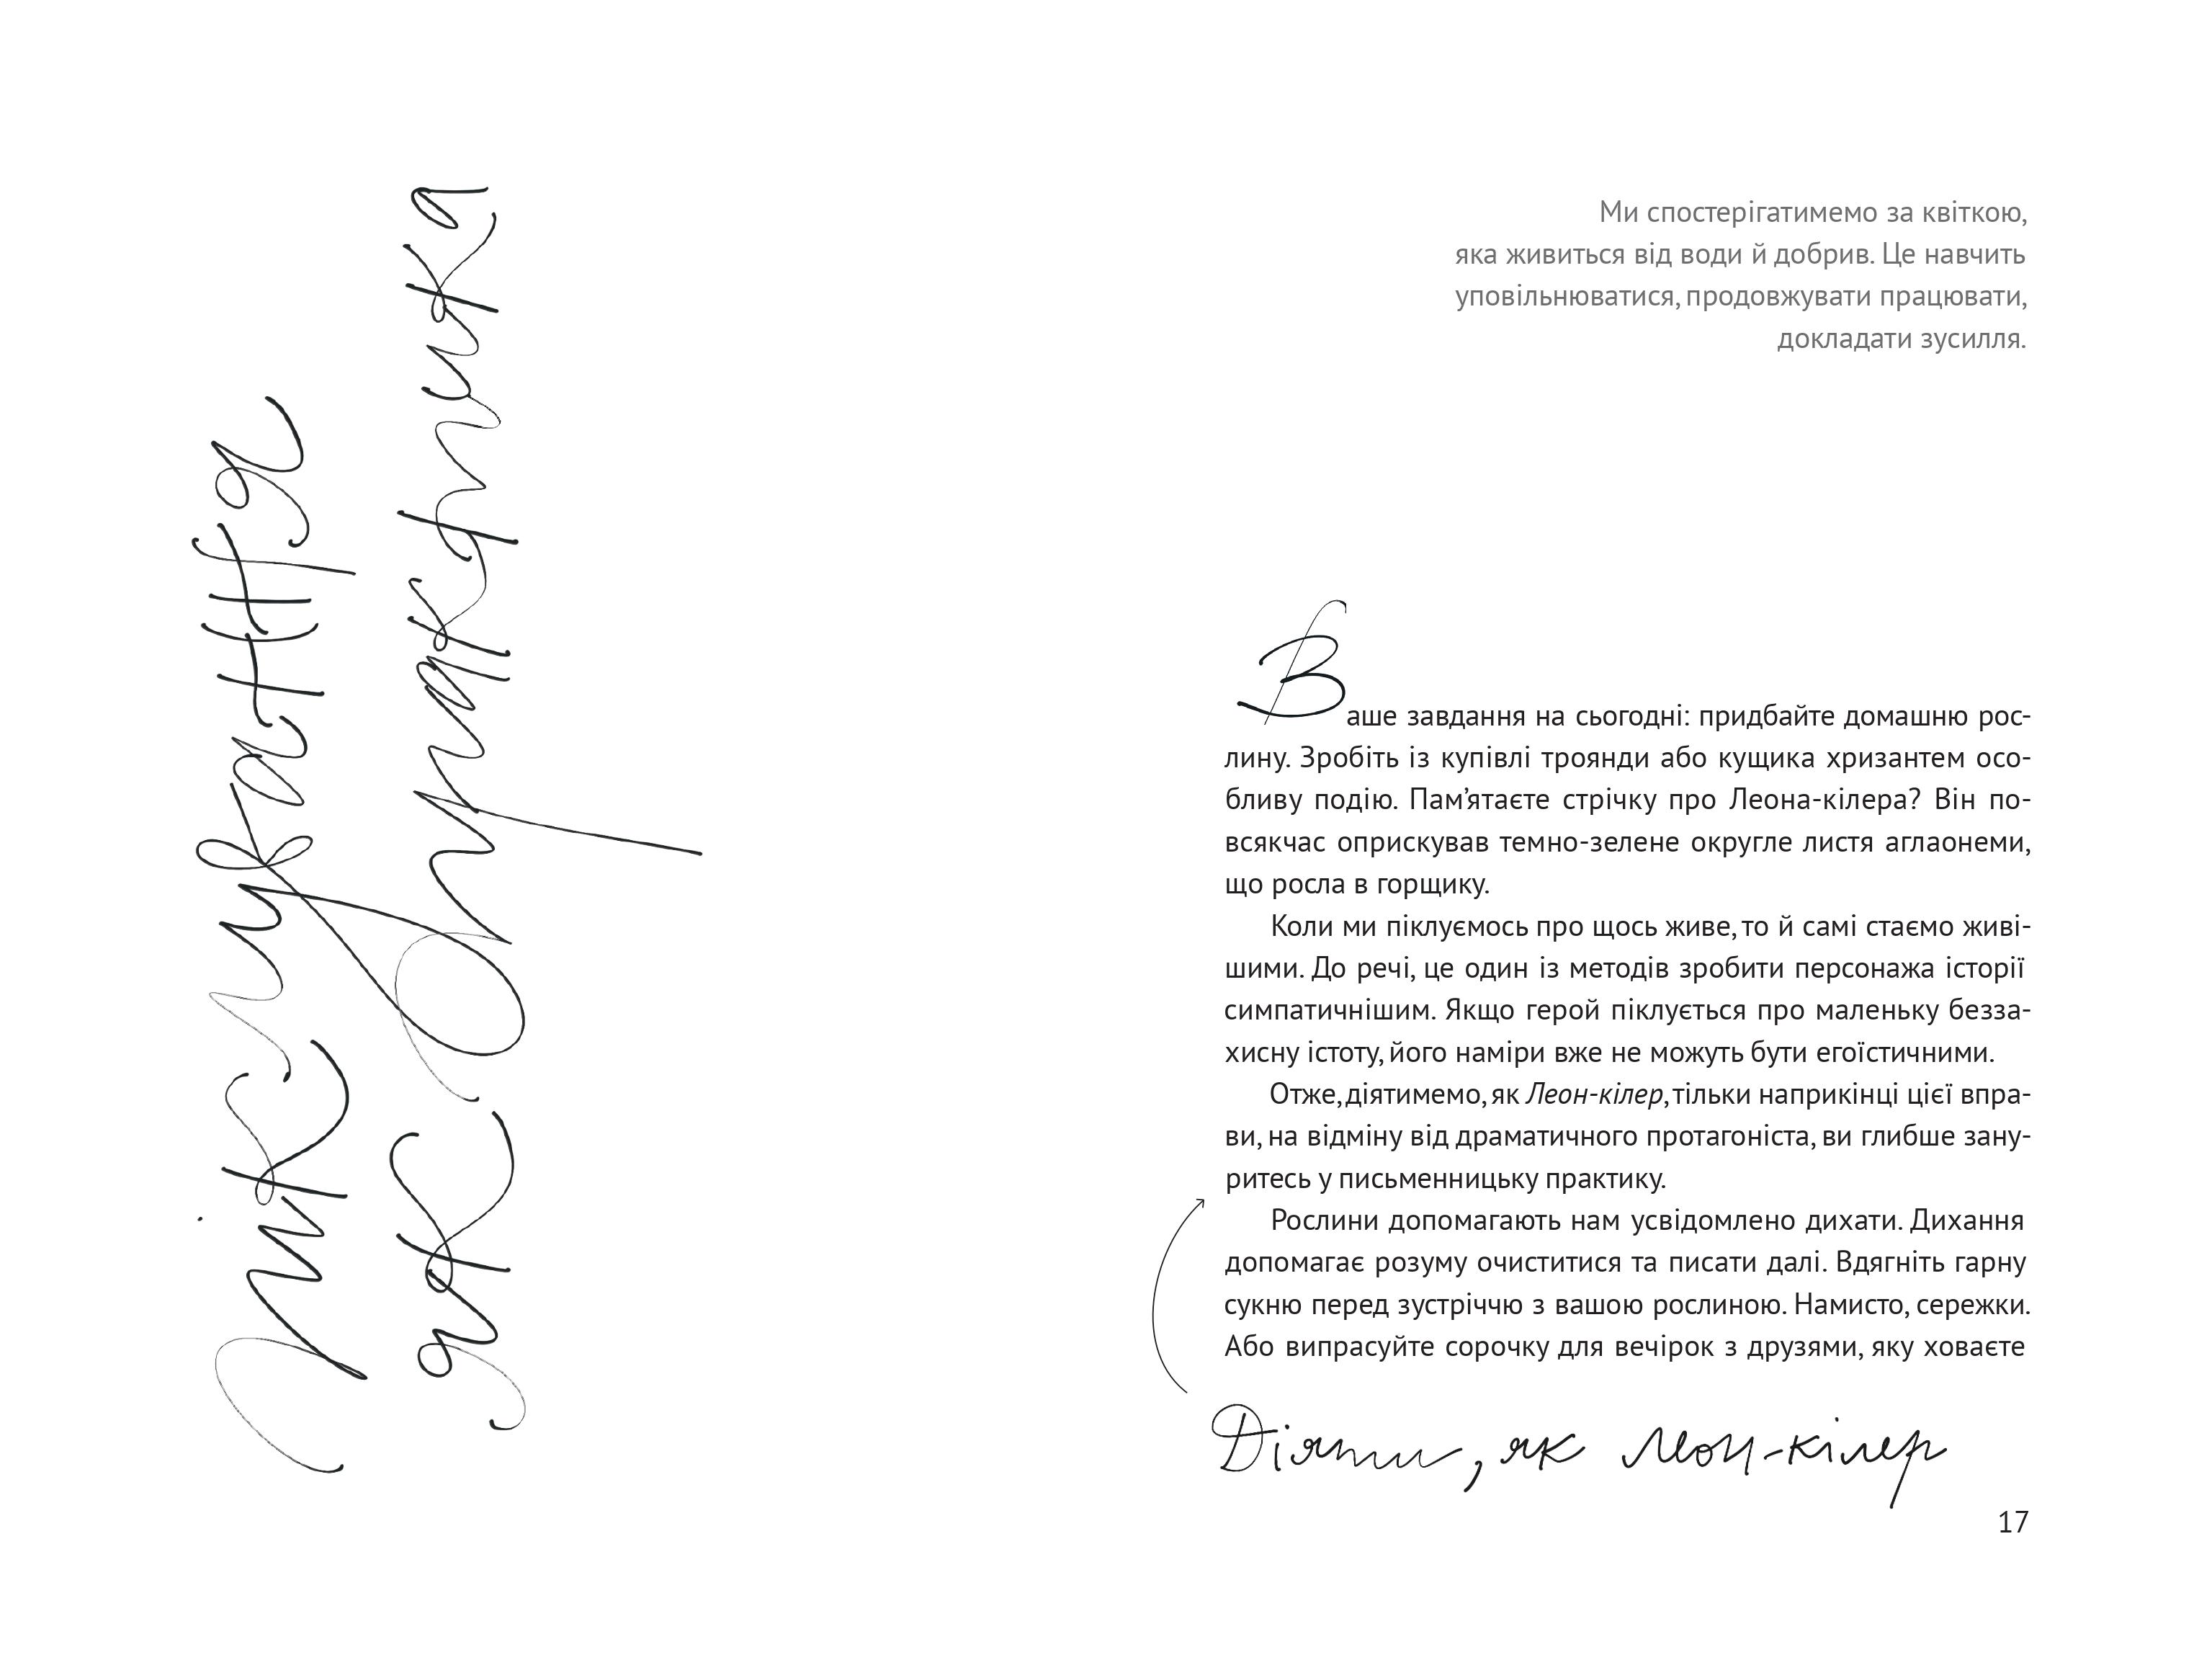 Піклування
як практика
Ми спостерігатимемо за квіткою,
яка живиться від води й добрив. Це навчить
уповільнюватися, продовжувати працювати,
докладати зусилля.
Ваше завдання на сьогодні: придбайте домашню рос-
лину. Зробіть із купівлі троянди або кущика хризантем осо-
бливу подію. Пам’ятаєте стрічку про Леона-кілера? Він по-
всякчас оприскував темно-зелене округле листя аглаонеми,
що росла в горщику.
Коли ми піклуємось про щось живе, то й самі стаємо живі-
шими. До речі, це один із методів зробити персонажа історії
симпатичнішим. Якщо герой піклується про маленьку безза-
хисну істоту, його наміри вже не можуть бути егоїстичними.
Отже, діятимемо, як Леон-кілер, тільки наприкінці цієї впра-
ви, на відміну від драматичного протагоніста, ви глибше зану-
ритесь у письменницьку практику.
Рослини допомагають нам усвідомлено дихати. Дихання
допомагає розуму очиститися та писати далі. Вдягніть гарну
сукню перед зустріччю з вашою рослиною. Намисто, сережки.
Або випрасуйте сорочку для вечірок з друзями, яку ховаєте
Діяти, як Леон-кілер
17